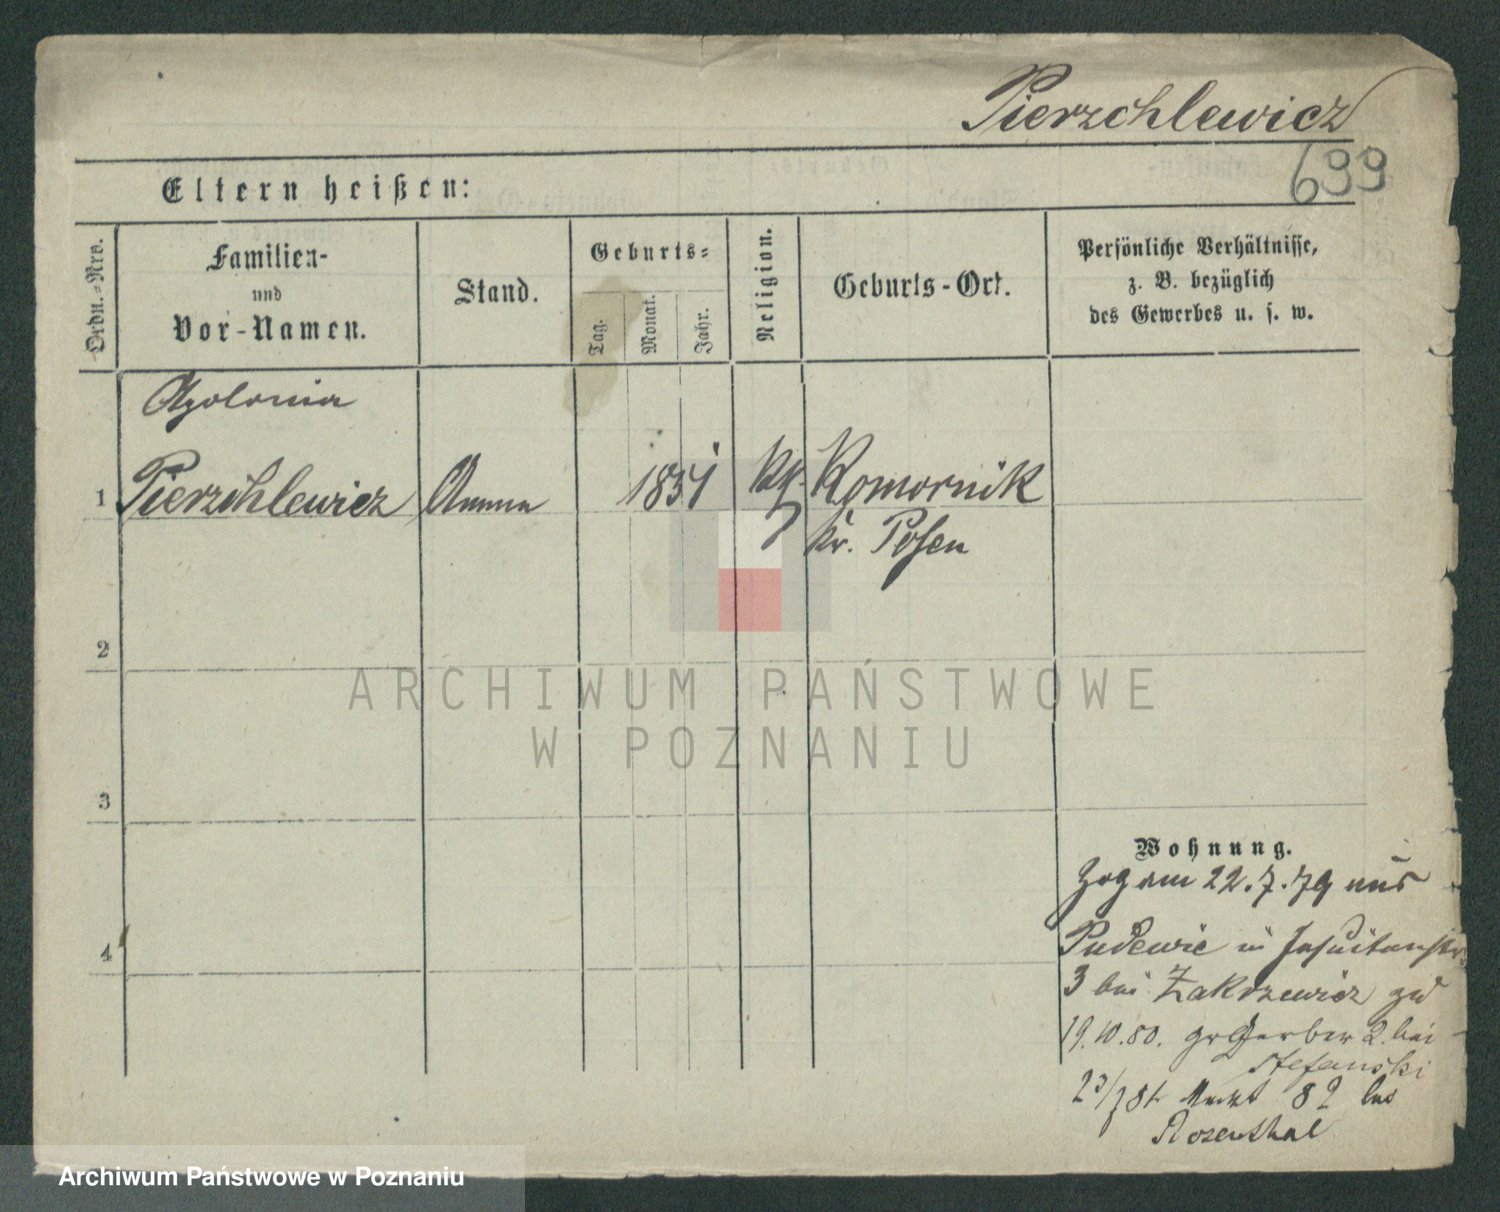 Pierzchlewicz
699
Eltern heißen:
Ordn.-Nro.
Familien-
und
Vor-Namen.
Stand.
Geburts-
Tag.
Monat.
Jahr.
Religion.
Geburts-Ort.
Persönliche Verhältnisse,
z. B. bezüglich
des Gewerbes u. s. w.
Apolonia
1 Pierzchlewicz Amme 1851 kk. Komornik
Kr. Posen
2
3
4
Wohnung.
Zog am 22.7.79 aus
Pudewic in Jesuitenstr
3 bei Zakrzewicz
19.10.80. gr Gerber 2. bei
Stefanski
Markt 82 bei
Rosenthal
ARCHIWUM PAŃSTWOWE
W POZNANIU
Archiwum Państwowe w Poznaniu